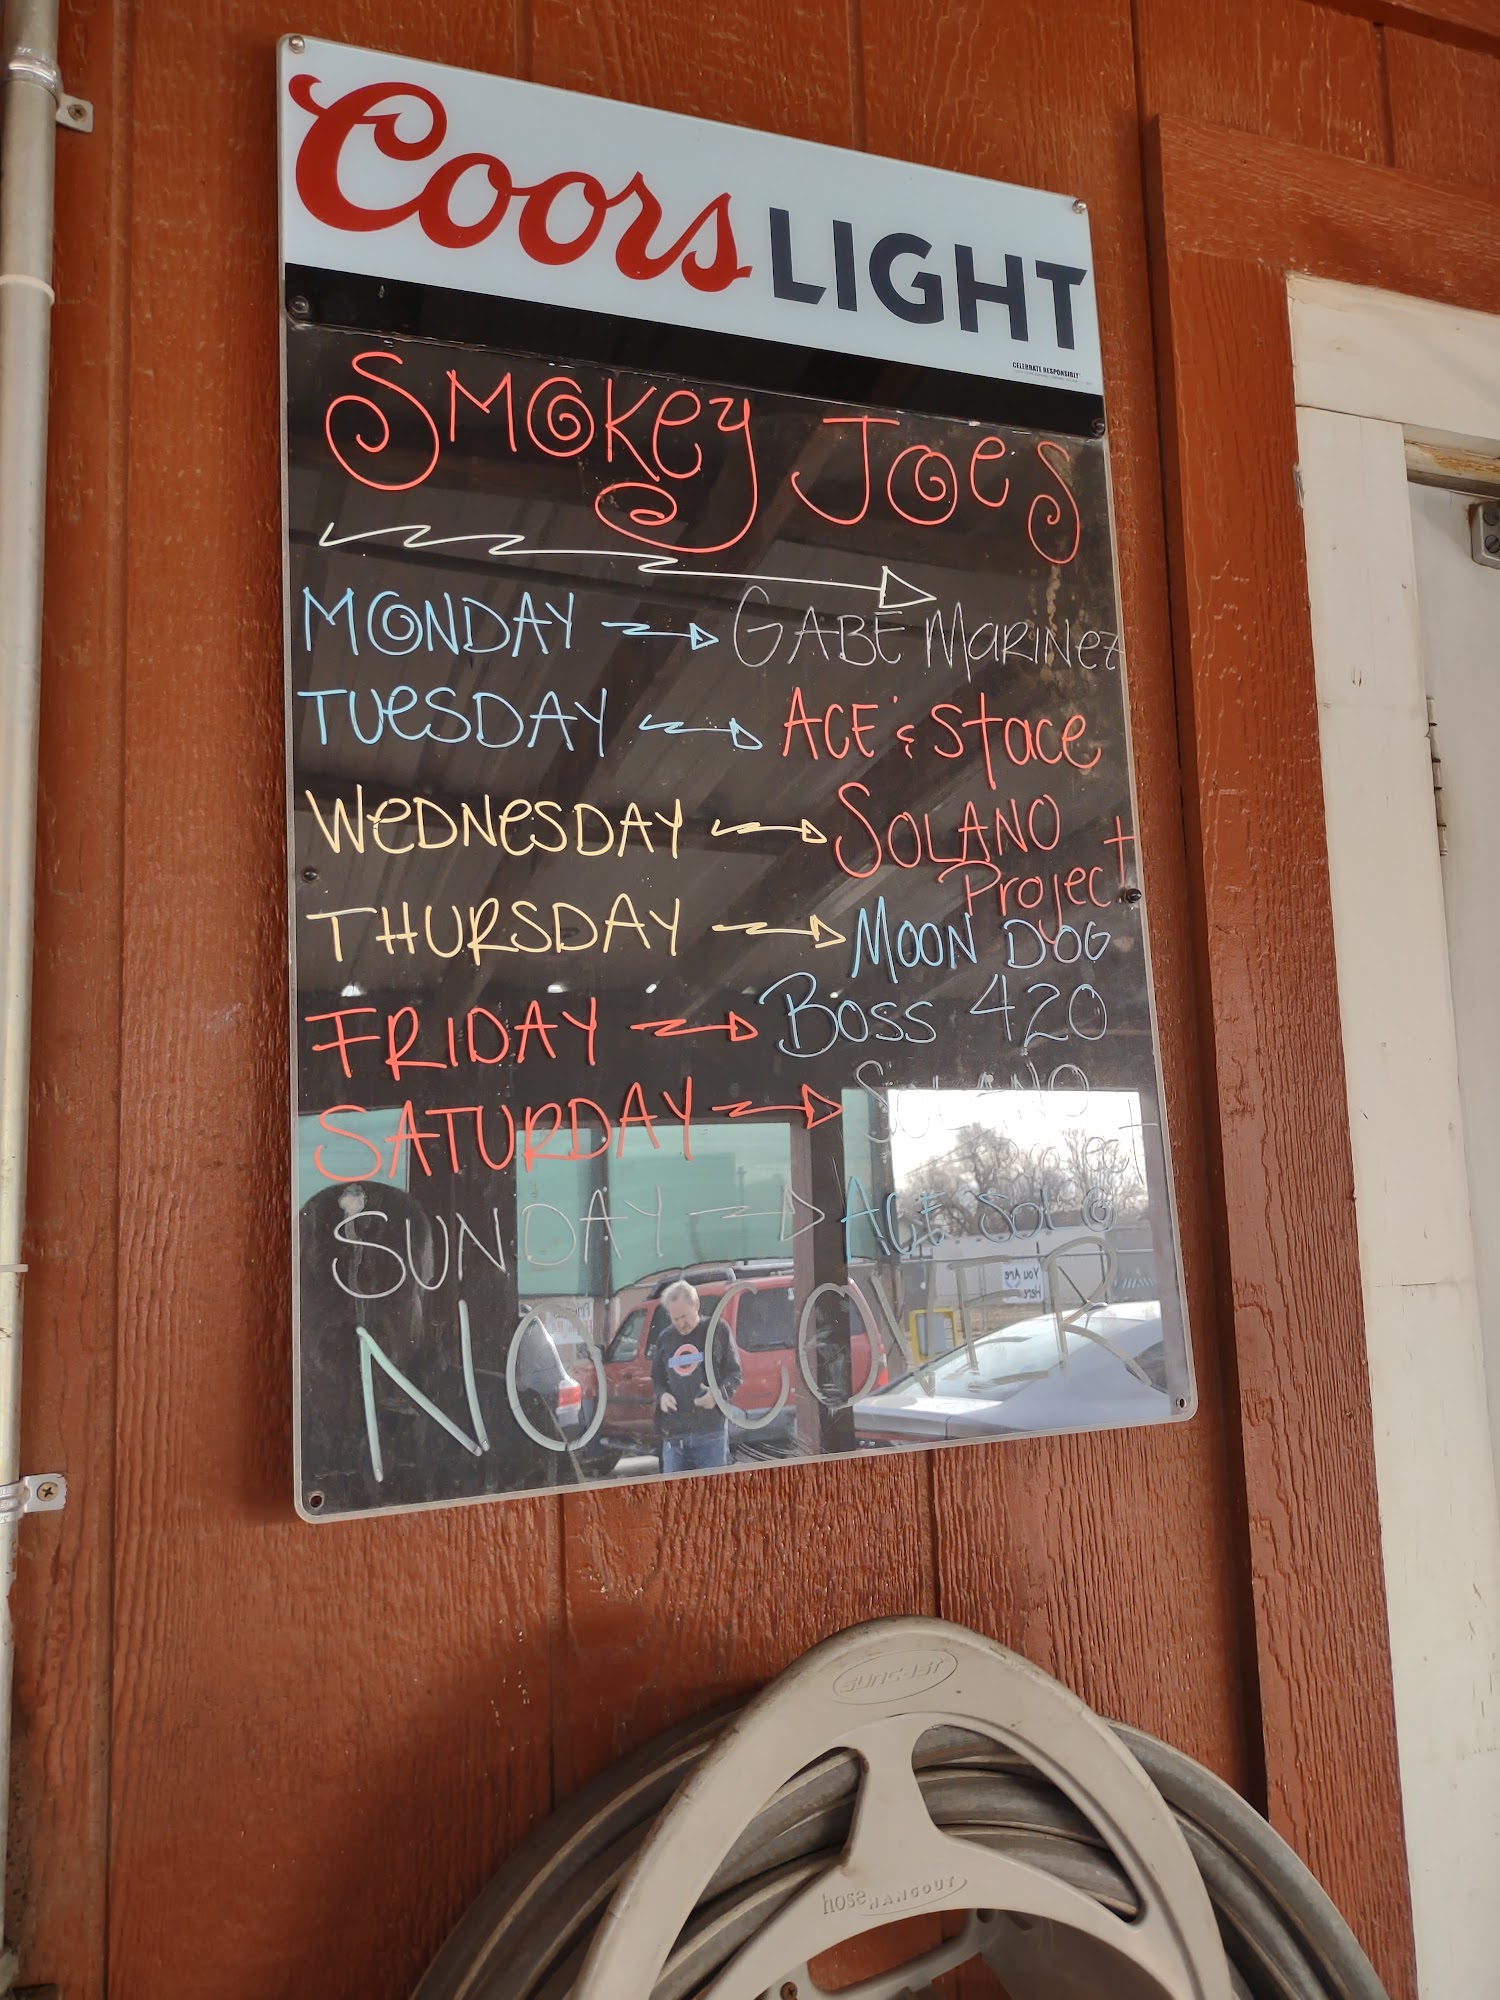 Coors LIGHT
CELEBRATE RESPONSIBLY
SMOKEY JOES
MONDAY GABE MARINEZ
TUESDAY ACE & Stace
WEDNESDAY SOLANO
Project
THURSDAY MOON DOG
FRIDAY BOSS 420
SATURDAY SOLANO
SUNDAY ACE SOLO
NO COVER
You Are
Here
SUNCAST
hose HANGOUT